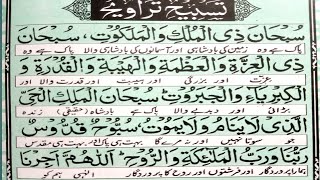 تسبیح تراویح
سُبْحَانَ ذِی الْمُلْکِ وَالْمَلَکُوْتِ، سُبْحَانَ
پاک ہے وہ زمین کی بادشاہی اور آسمانوں کی بادشاہی والا پاک ہے وہ
ذِی الْعِزَّةِ وَالْعَظَمَةِ وَالْهَيْبَةِ وَالْقُدْرَةِ وَ
عزت اور بزرگی اور ہیبت اور قدرت والا اور
الْکِبْرِيَآءِ وَالْجَبَرُوْتِ سُبْحَانَ الْمَلِکِ الْحَيِّ
بڑائی اور دبدبے والا پاک ہے بادشاہ (حقیقی) زندہ
الَّذِیْ لَا يَنَامُ وَلَا يَمُوْتُ سُبُّوْحٌ قُدُّوْسٌ
جو سوتا نہیں اور نہ مرے گا بہت ہی پاک اور بہت ہی مقدس
رَبُّنَا وَرَبُّ الْمَلٰٓئِکَةِ وَالرُّوْحِ اَللّٰهُمَّ اَجِرْنَا
ہمارا پروردگار اور فرشتوں اور روح کا پروردگار الٰہی ہم کو